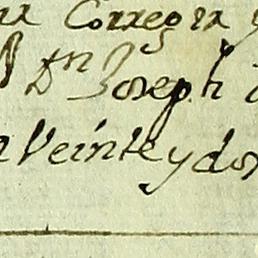 Corregra
Dn Joseph
Veinte y dos